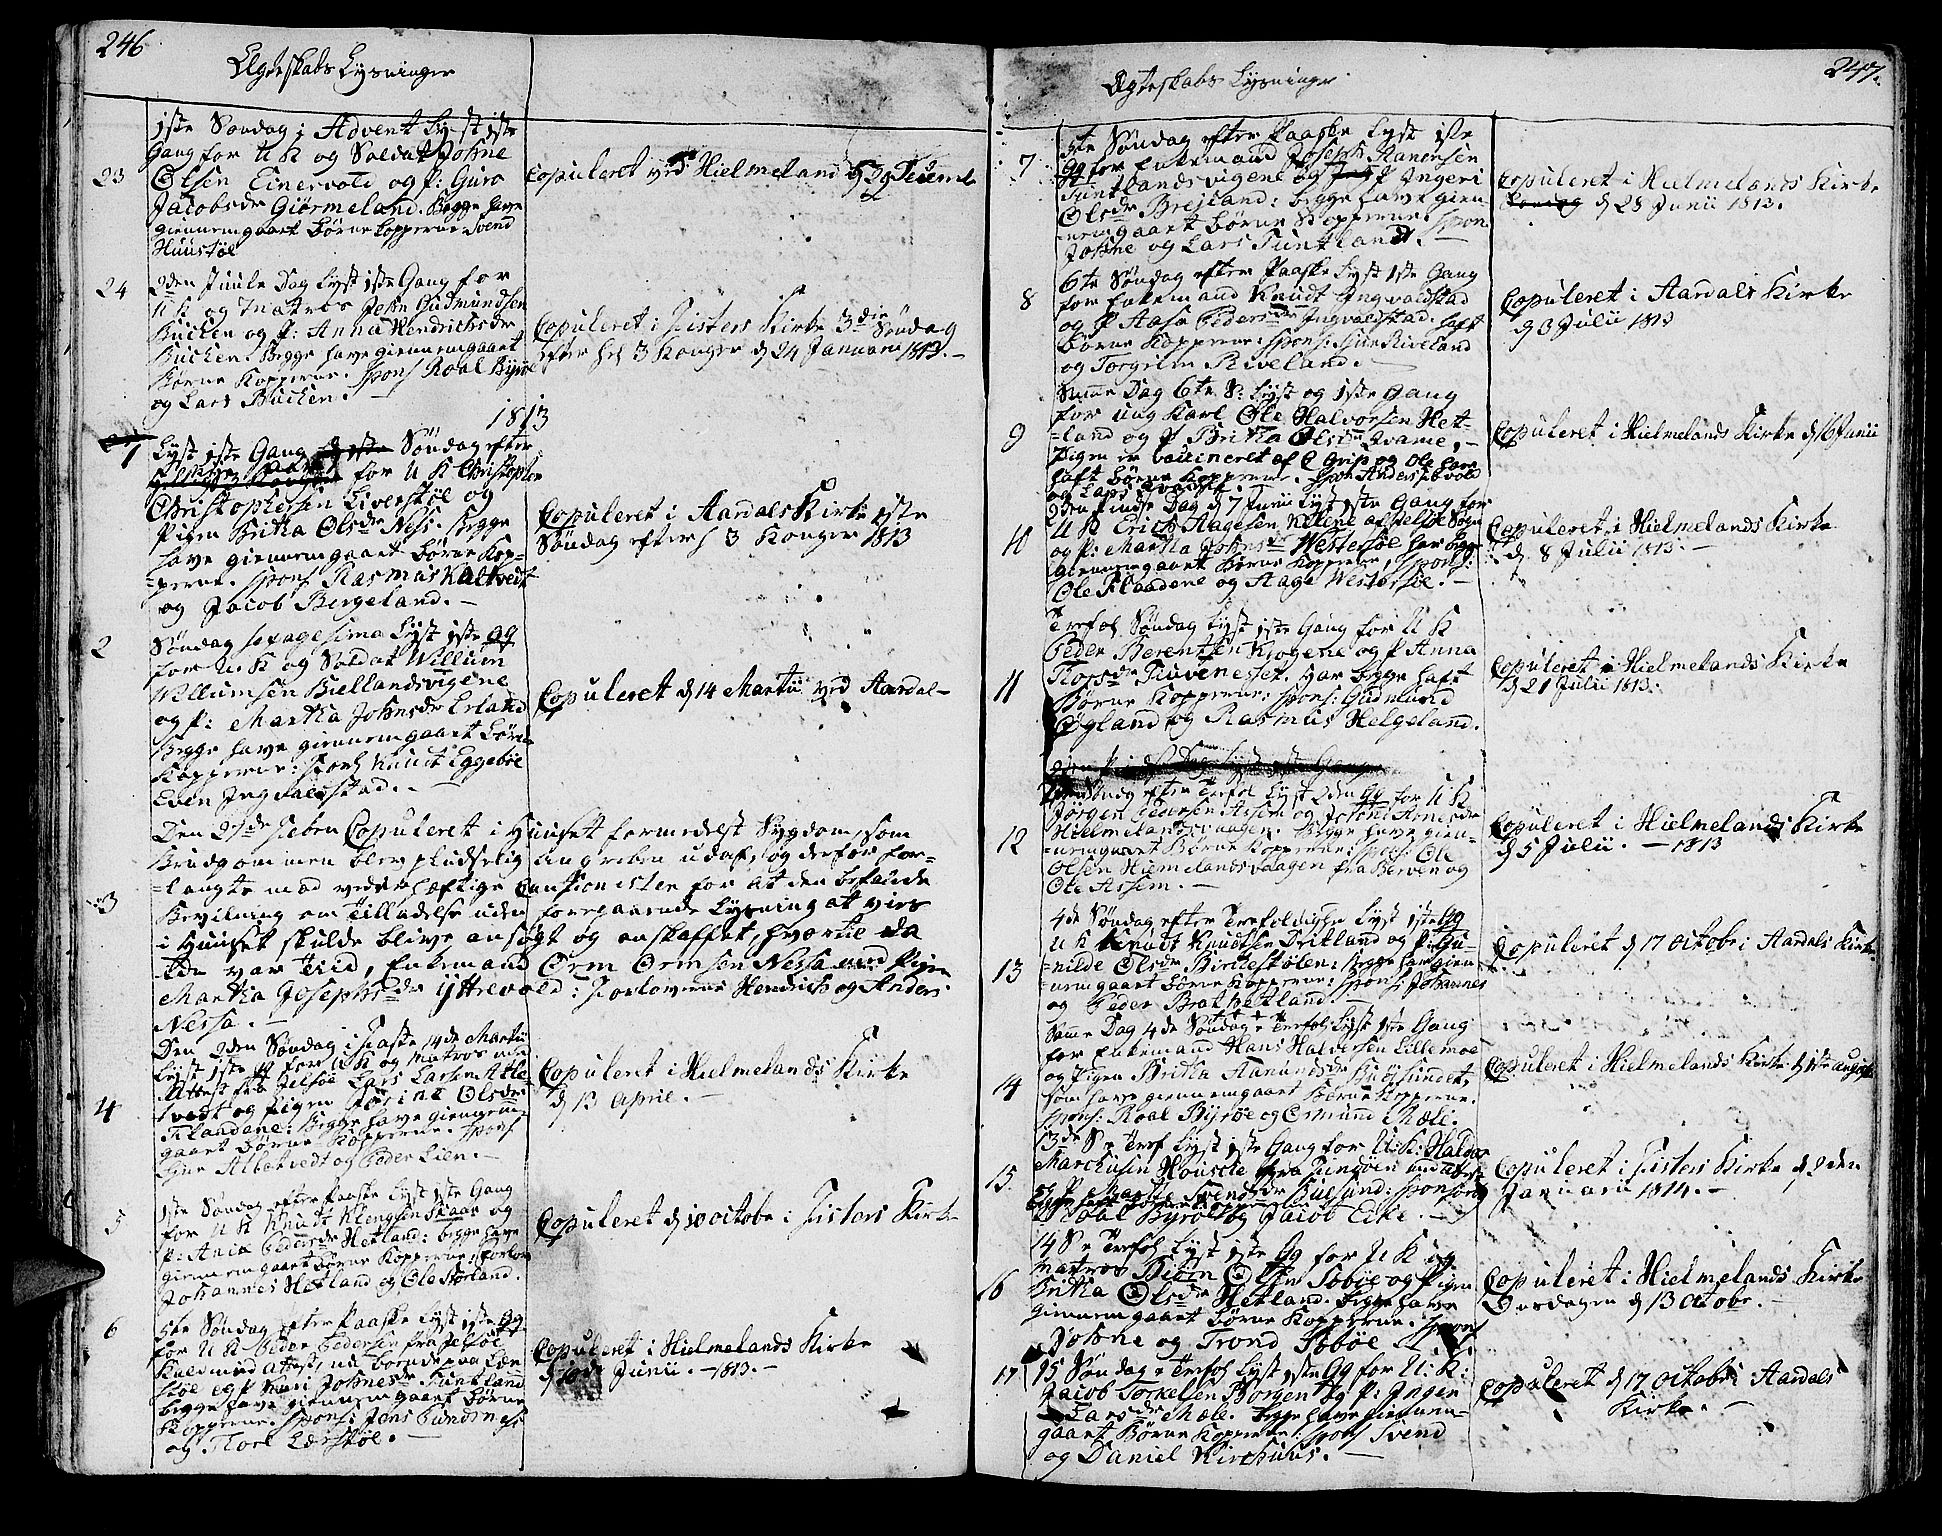 246
Egteskabs Lysninger
23
1ste Søndag i Advent Lyst 1ste
Gang for U K og Soldat Johne
Olsen Einervold og P: Guro
Jacobsdr Giørmeland. Begge have
giennemgaaet Børne Kopperne Svend
Huustøe
Copuleret ved Hielmeland
24
2den Juule Dag Lyst 1ste Gang for
U K og Matros John Gudmundsen
Buchen og P: Anna Hendrichsdr
Buchen. Begge have giennemgaaet
Børne Kopperne. Spons Roal Byrøe
og Lars Buchen. —
Copuleret i Fisters Kirke 3die Søndag
efter hel 3 Konger d 24 Januarii 1813. —
1813
1
Lyst 1ste Gang Søndag efter
for U K Christopher
Christophersen Liverstøe og
Pigen Britha Olsdr Ness. Begge
have giennemgaaet Børne Kop-
=perne. Spons Rasmus Kaltvedt
og Jacob Bergeland. —
Copuleret i Aardals Kirke 1ste
Søndag efter h 3 Konger 1813
2
Søndag sexagesima Lyst 1ste Gg
for U. K og Soldat Willum
Willumsen Kiellandsvigene
og P: Martha Johnsdr Erland
Begge have giennemgaaet Børne
Kopperne: Knudt Eggebøe
Even Ingvaldstad. —
Copuleret d 14 Martii ved Aardal —
3
Den Febru Copuleret i Huuset formedelst Sygdom, som
Brudgommen blev pludselig angreben udaf, og derfor for-
=langte mod vederhæftige Cautionister for at den befalede
Bevilning om Tilladelse uden foregaaende Lysning at vies
i Huuset skulde blive ansøgt og anskaffet, hvortil da
ide var Tiid, Enkemand Orm Ormsen Nessa med Pigen
Martha Josephsdr Yttrevold: Forloverne Hendrich og Anders
Nessa. —
4
Den 2den Søndag i Faste 14de Martii
Lyst 1ste for U K og Matros med
Attest fra Jelsøe Lars Larsen Atle-
tvedt og Pigen Olsdr
Flandene: Begge have giennem-
gaaet Børne Kopperne. Spons
Albetvedt og Peder Lien. —
Copuleret i Hielmelands Kirke
d 13 April. —
5
1ste Søndag efter Paaske Lyst 1ste Gang
for U K Knudt Klengsen Skaar og
P: Ania Pedersdr Hetland: begge have
giennemgaaet Børne Kopperne: Forlov
Johannes Hetland og Ole Storland.
Copuleret d 10 octobr i Fisters Kirke
6
5te Søndag efter Paaske Lyst 1ste Gg
for U K Peder Pedersen fra Jelsøe
med atest, nu boende paa Lær-
støe og P Kari Johnesdr Funtland
begge have giennemgaaet Børne
Kopperne. Spons: Jens
og Thore Lærstøe. —
Copuleret i Hielmelands Kirke
Junii. — 1813. —
247.
Ægteskabs Lysninger
7
5te Søndag efter Paaske Lyst 1ste
Gg for Enkemand Joseph Aanensen
Funtlandsvigene og P Ingeri
Olsdr Breiland: begge have gien-
nemgaaet Børne Kopperne. Spon
Johne og Lars Funtland. —
Copuleret i Hielmelands Kirke
d 25 Junii 1813.
8
6te Søndag efter Paaske Lyst 1ste Gang
for Enkemand Knudt Ingvaldstad
og P Aasa Pedersdr Ingvaldstad. haft
Børne Kopperne: Spons: Riveland
og Torgrim Riveland. —
Copuleret i Aardals Kirke
d 3 Julii 1813
9
Samme Dag 6te S: Lyst og 1ste Gang
for ung Karl Ole Halvorsen Het-
=land og P Britha Olsdr Qvame, —
Pigen er vaccineret af C Grip og Ole have
haft Børne Kopperne. Spon Anders
og Lars Qvame.
Copuleret i Hielmelands Kirke d 16 Junii
10
2den Pindse Dag d 7 Junii Lyst 1ste Gang for
U K Erich Aagesen af Jelsøe Sogn
og P: Martha Johnsdr Westersøe har begge
giennemgaaet Børne Kopperne, Spons:
Ole Flaadene og Aage Westersøe. —
Copuleret i Hielmelands Kirke
d. 8 Julii 1813. —
11
Trefol Søndag Lyst 1ste Gang for U K
Peder Berentsen og P Anna
Tiuvenesset, har begge haft
Børne Kopperne: Spons: Gudmund
Øgland og Rasmus Helgeland.
Copuleret i Hielmelands Kirke
d 21 Julii 1813.
12
efter Trefol Lyst 2den Gg for U K
Jørgen Pedersen Assem og Arnesdr
Hielmelandsvaagen. Begge have gien-
=nemgaaet Børne Kopperne: Spons: Ole
Olsen Hielmelandsvaagen fra Berven og
Ole Assem. —
Copuleret i Hielmelands Kirke
d 5 Julii. — 1813
13
4de Søndag efter Trefoldighn Lyst 1ste Gg
U K Knudt Knudtsen Tritland og P: Gu-
=nilde Olsdr Birchestølen: Begge har gien-
=nemgaaet Børne Kopperne: Spons: Johannes
og Peder Bratvetland. —
Copuleret d 17 octobr i Aardals Kirke
14
Samme Dag 4de Søndag e Trefol Lyst 1ste Gang
for Enkemand Hans Halvorsen Lillemoe
og Pigen Britha Aanundsdr
som have giennemgaaet Børne Kopperne.
Spons: Roal Byrøe og Ormund Mæle.
Copuleret i Hielmelands Kirke d 1ste august
15
13de S e Tref Lyst 1ste Gang for U. K: Haldor
Marchusen Houske fra Findøen med atest
og P Martha Svendsdr Buesund: Sponsorer
Roal Byrøe og Jacob Eike. —
Copuleret i Fisters Kirke d 9 den
Januarii 1814. —
16
14 S e Trefol Lyst 1ste Gg for U K og
Matros Olsen Tobøe og Pigen
Britha Olsdr Hetland. begge have
giennemgaaet Børne Kopperne. Spons
Johne og Trond Tobøe
Copuleret i Hielmelands Kirke
Onsdagen d 13 octobr. —
17
15 Søndag e Trefol Lyst 1ste Gg for U: K:
Jacob Torkelsen Borgen og P: Inger
Larsdr Mæle. begge have giennem-
gaaet Børne Kopperne: Spons Svend
og Daniel Kirchuus. —
Copuleret d 17 octobr i Aardals
Kirke. —